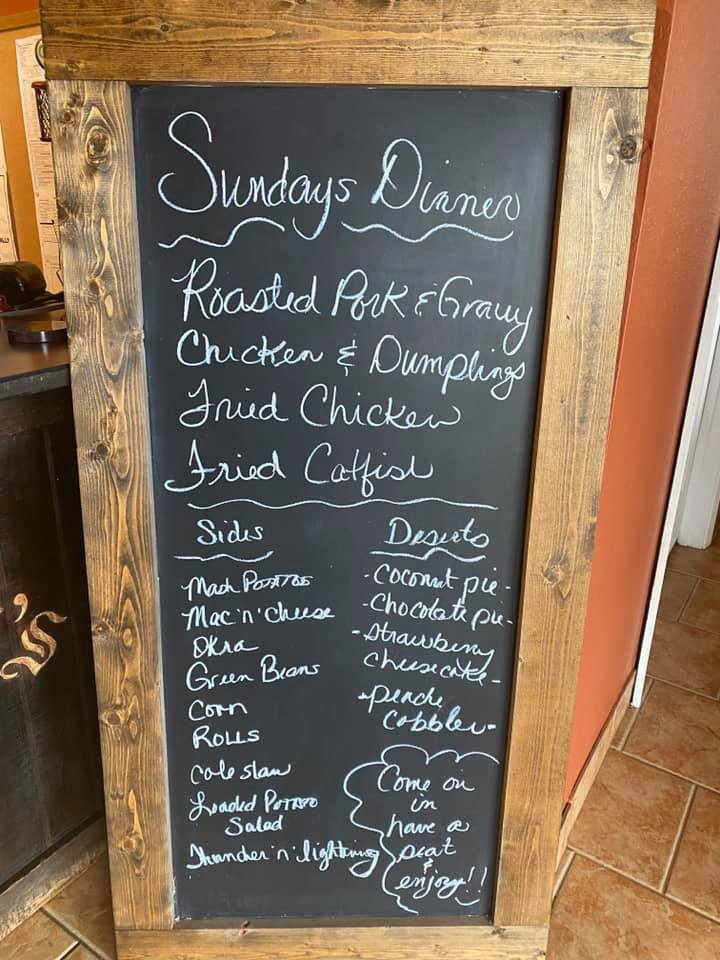 Sundays Dinner
Roasted Pork & Gravy
Chicken & Dumplings
Fried Chicken
Fried Catfish
Sides
Mash Potatoes
Mac'n'cheese
Okra
Green Beans
Corn
Rolls
Coleslaw
Loaded Potato
Salad
Thunder'n'lightning
Deserts
-Coconut pie-
-Chocolate pie-
-Strawberry
Cheesecake-
-peach
cobbler-
Come on
in
have a
seat
&
enjoy!!
's